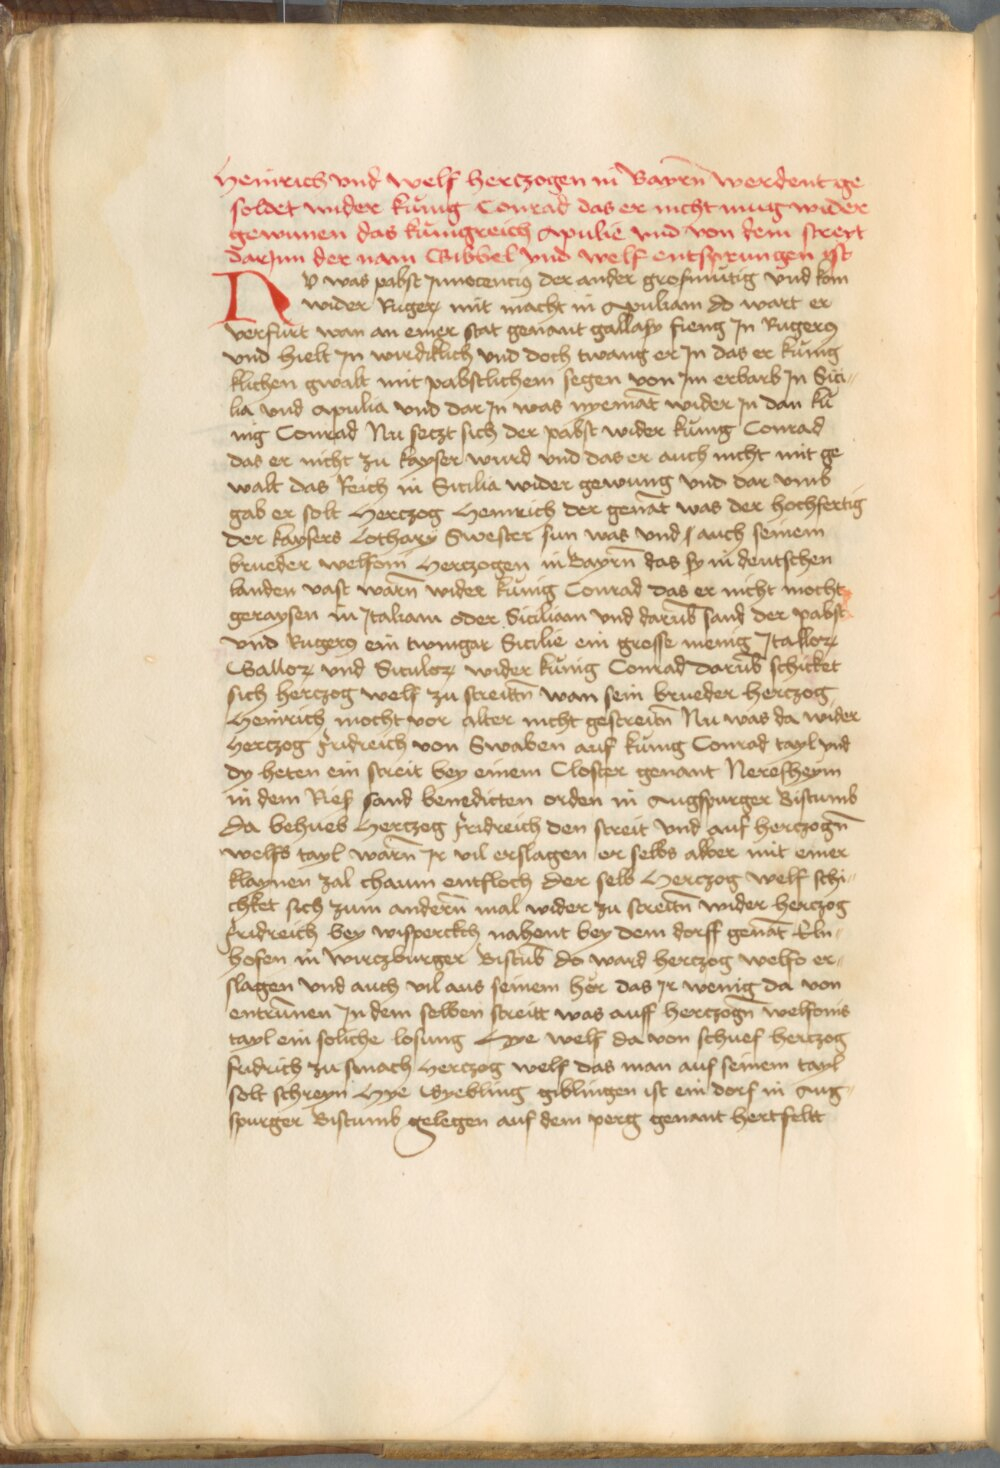 Heinrich vnd welf herczogen in Bayrn̄ werdent ge
soldet wider kűnig Conrad das er nicht mug wider
gewinnen das kűnigreich Apulie vnd von dem streit
darJnn der nam Gibbel vnd welf entsprungen ist
Dv was pabst Jnnocencius der ander grosműtig vnd kom
wider Ruger mit macht in Apuliam do wart er
verfurt wan an einer stat genant gallasy fieng Jn Rugerꝰ
vnd hielt Jn wirdiklich vnd doch twang er Jn das er kűnig
klichen gwalt mit pabstlichem segen von Jm erbarb Jn Sici-
lia vnd Apulia vnd dar Jn was nyemāt wider Jn dan kű
nig Conrad Nu seczt sich der pabst wider kűnig Conrad
das er nicht zu kayser wurd vnd das er auch nicht mit ge
walt das Reich in Sicilia wider gewung vnd dar vmb
gab er solt Herczog Heinrich der genāt was der hochfertig
der kaysers Lothary Swester sun was vnd auch seinem
brueder welfom Herczogen in Bayrn̄ das sy in deutschen
landen vast warn̄ wider kűnig Conrad das er nicht mocht
geraysen in Jtaliam oder Siciliam vnd darūb sand der pabst
vnd Rugerꝰ ein twingar Sicilie ein grosse menig Jtalloꝝ
Galloꝝ vnd Siculoꝝ wider kűnig Conrad darūb schicket
sich herczog welf zu streittn̄ wan sein brueder herczog
Heinrich mocht vor alter nicht gestreitn̄ Nu was da wider
Herczog fridreich von Swaben auf kűnig Conrad tayl vnd
dy heten ein streit bey einem Closter genant Neresheym
in dem Rief sand benedicten orden in Augspurger Bistumb
da behueb Herczog fridreich den streit vnd auf herczogn̄
welfs tayl warn̄ Jr vil erslagen er selbs aber mit einer
klaynen zal chaum entfloch der selb Herczog welf schi-
chket sich zum andern̄ mal wider zu streittn̄ wider herczog
fridreich bey wisperckch nahent bey dem dorff genāt Eln-
hofen in wirczburger Bistūb do ward herczog welfo er-
slagen vnd auch vil aus seinem hőr das Jr wenig da von
entrunnen Jn dem selben streitt was auff herczogn̄ welfonis
tayl ein soliche losung Hye welf da von schuef herczog
fridrich zu smach Herczog welf das man auf seinem tayl
solt schreyn Hye Gyebling giblingen ist ein dorf in Aug-
spurger Bistumb gelegen auf dem perg genant hertfeltt